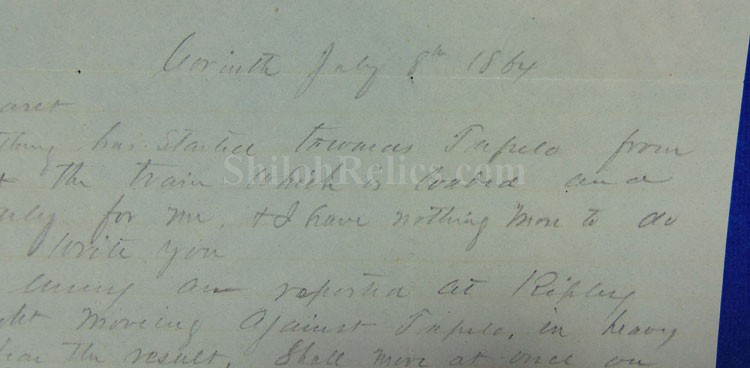 Corinth July 8th 1864
arest
thing has started towards Tupelo from
the train which is loaded and
for me, & I have nothing more to do
write you
enemy are reported at Ripley
moving against Tupelo, in heavy
the result. Shall move at once on
ShilohRelics.com